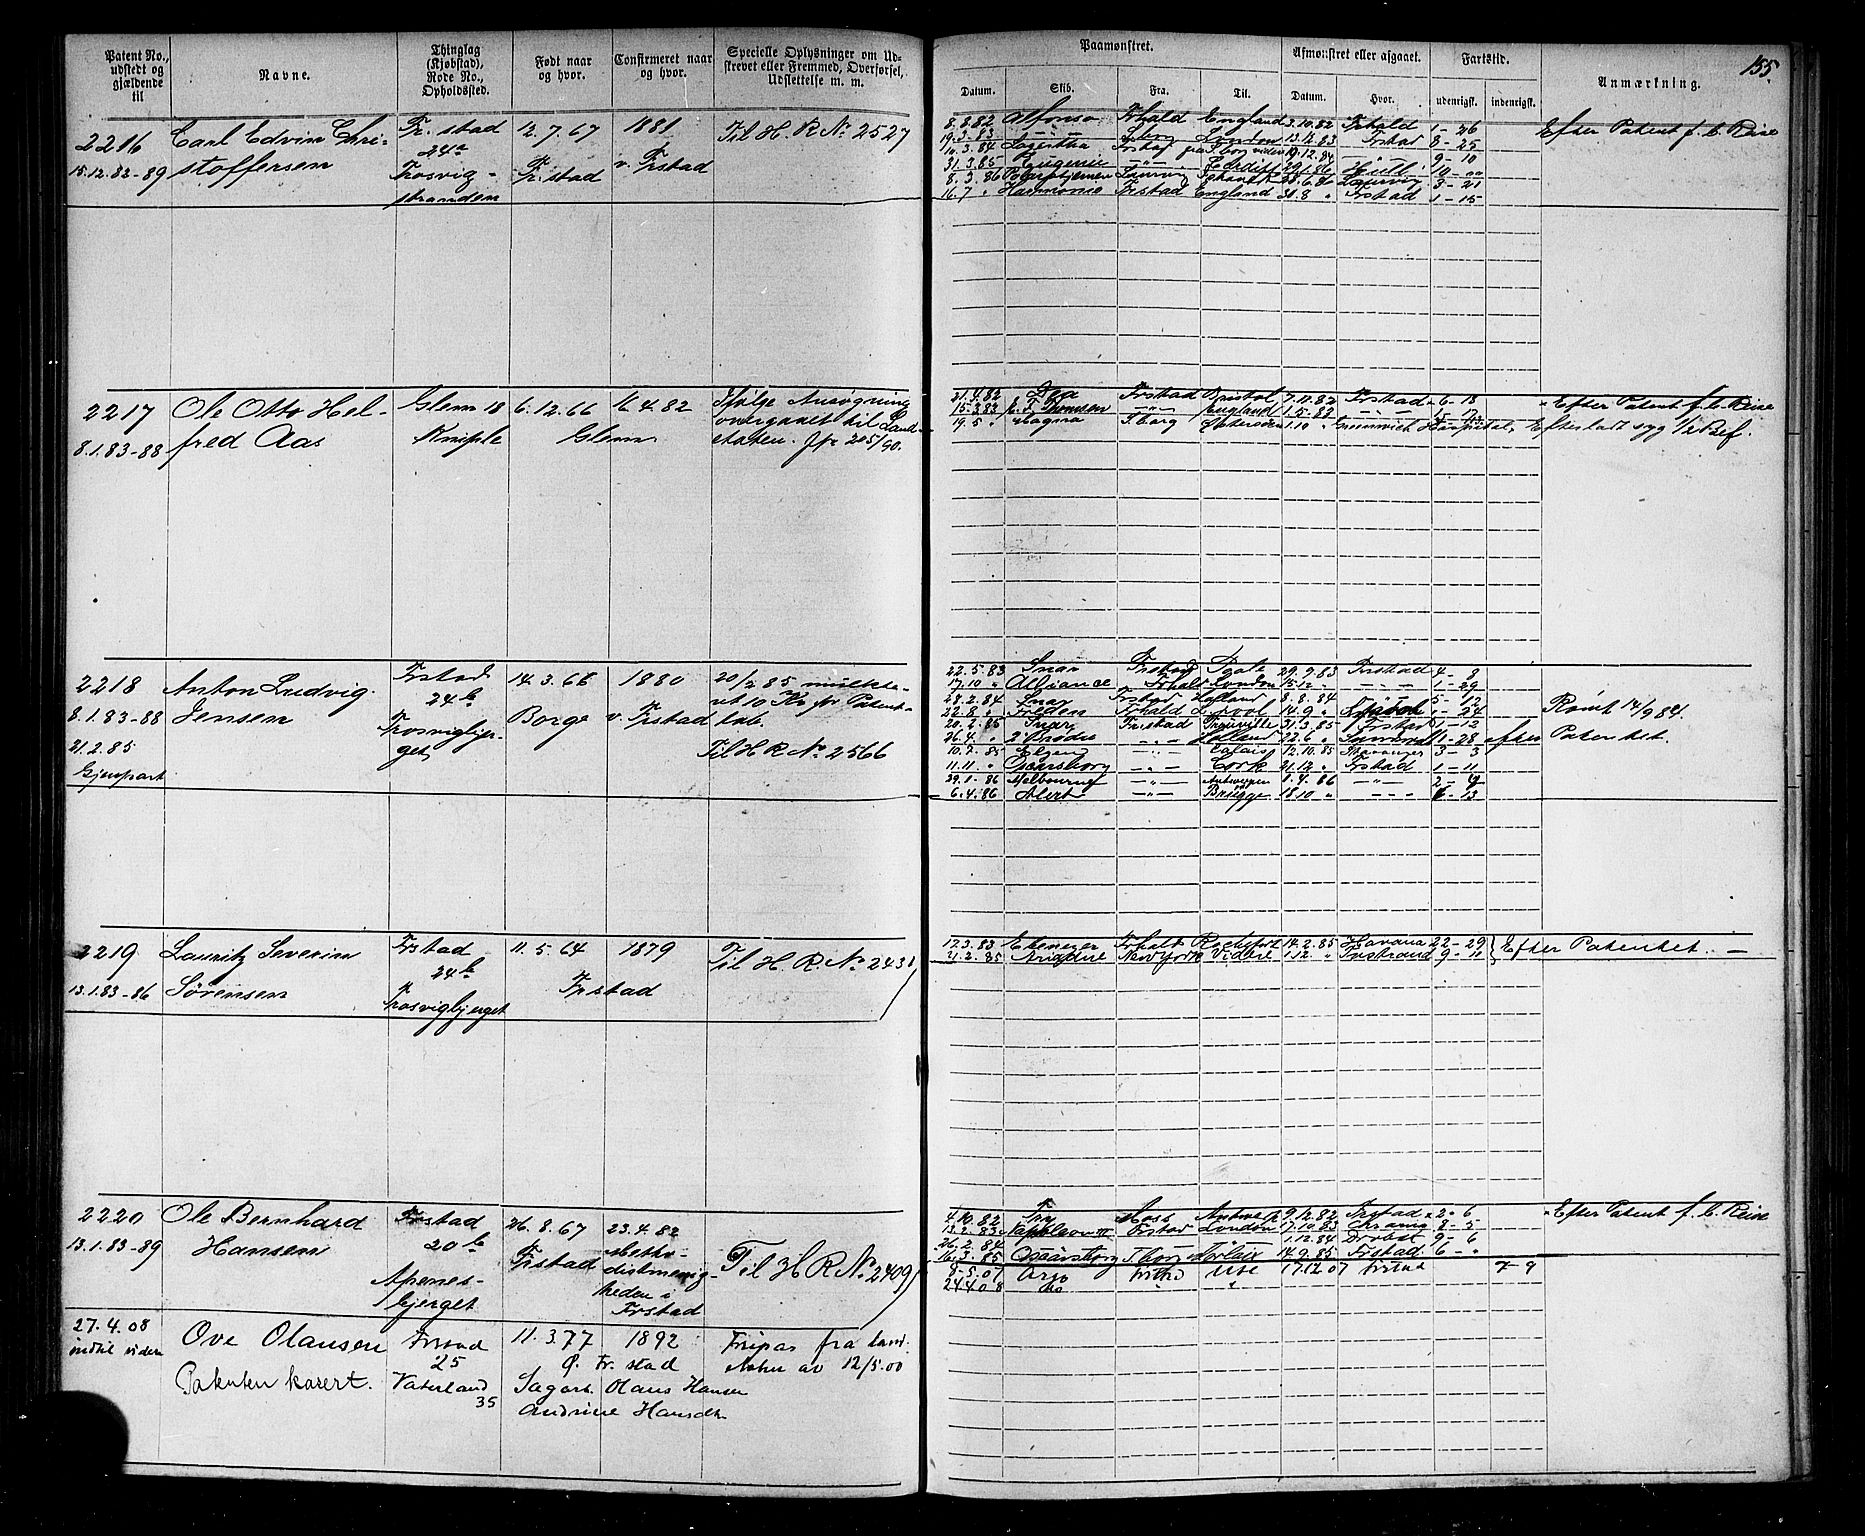 155
Patent No., udstedt og gjældende til
Navne.
Thinglag (Kjøbstad), Rode No., Opholdssted.
Født naar og hvor.
Confirmeret naar og hvor.
Specielle Oplysninger om Udskrevet eller Fremmed, Overførsel, Udslettelse m. m.
Paamønstret.
Afmønstret eller afgaaet.
Fartstid.
Anmærkning.
Datum.
Skib.
Fra.
Til.
Datum.
Hvor.
udenrigsk.
indenrigsk.
2216 Carl Edvin Chri- Fr. stad 12.7.67 1881 Til H. R No. 2527
15.12.82-89 stoffersen 24a Fr. stad v. Frstad
Trosvig-
stranden
8.2.82 Alfonso Frhald England 3.10.82 Frhald 1-26 Efter Patent f. b. Reise
19.3.83 London 13.12.83 Frstad 8-25
10.3.84 Lagertha 19.12.84 9-10
31.3.85 Eugenie Cardiff Hull 10
8.3.86 Polarstjernen Laurvig Laurvig 3-21
16.7 " Harmonie Frstad England 31.8 " Frstad 1-15
2217 Ole Otto Hel- Glem 18 6.12.66 16.4.82 Ifølge Ansøgning
8.1.83-88 fred Aas Kniple Glem overgaaet til Land-
etaten. Jfr 205/90.
21.4.82 Frstad Bristol 7.11.82 Frstad 6-18 Efter Patent f. b. Reise
15.3.83 Thomesen England 1.5.83
19.5 " Magna F.borg 1.10 " Greenwich Hospital, Efterladt syg 1/2 Bef.
2218 Anton Ludvig Frstad 14.3.66 1880 20/2 85 mulkte-
8.1.83-88 Jensen 24b Borge v. Frstad ret 10 Kr for Patent-
21.2.85 Trosvigbjer- tab.
Gjenpart get Til H R No. 2566
22.5.83 Snar Frstad 29.9.83 Frstad 4-8
17.10 " Alliance Frhald London 15.12 1-29
28.2.84 Snar Frstad Holland 8.8.84 5-12
22.8 " Frieden Frhald 14.9 " 1-24 Rømt 14/9 84.
20.2.85 Snar Fr.stad 31.3.85 Frstad 1-12
26.4 " 2 Brødre Holland 22.6 " 1-28 efter Patentet.
10.7.85 Calais 12.10.85 Stavanger 3-3
11.11 " Sarpsborg Cork 21.12 " Frstad 1-11
29.1.86 Melbourne Antwerpen 8.4.86
6.4.86 Alert Brügge 18.10 " 6-13
2219 Lauritz Severin Frstad 11.5.64 1879 Til H. R. No. 2431
13.1.83-86 Sørensen 24b Frstad
Trosvigbjerget
17.3.83 Ebenezer Frhald 14.2.85 Havana 22-29 } Efter Patentet. —
21.2.85 Ariadne New York 1.12 " 9-10
2220 Ole Bernhard Frstad 26.8.67 23.4.82 Til H R No. 2409
13.1.83-89 Hansen 20b Frstad Metho-
Apenes- distmenig-
bjerget heden i
Frstad
4.10.82 Moss 9.12.82 Frstad 2-6 Efter Patent f. b. Reise
13.2.83 Napoleon III Frstad London 17.10.83 8-5
26.2.84 1.12.84 Drobak 9-6
16.3.85 Sarpsborg 14.9.85 Frstad 6-"
8.5.07 Argo 17.12.07 Frstad 7-9
24.4.08 do
27.4.08 Ove Olausen Frstad 11.3.77 1892 Fripas fra land-
indtil videre 25 Ø. Fr. stad staten av 12/5.00
Patenten kasert. Vaterland Sagarb. Olaus Hansen
35 Andrine Hansdtr